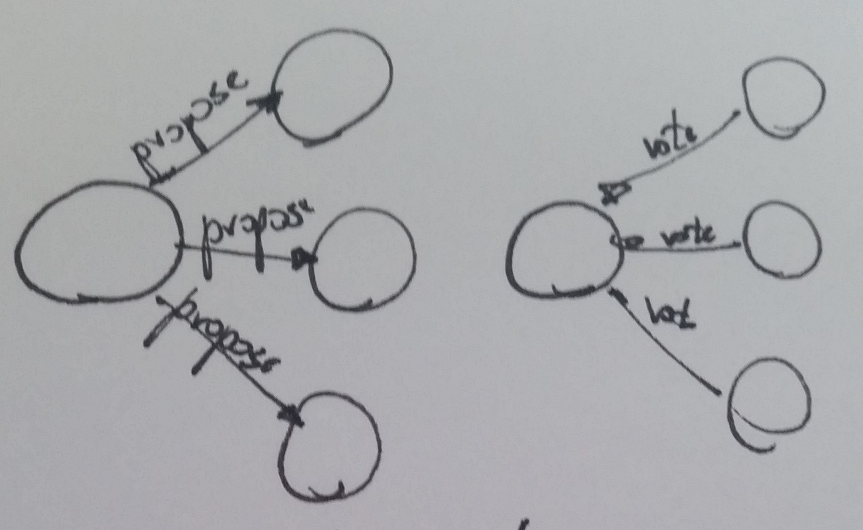 propose
propose
propose
vote
vote
vot